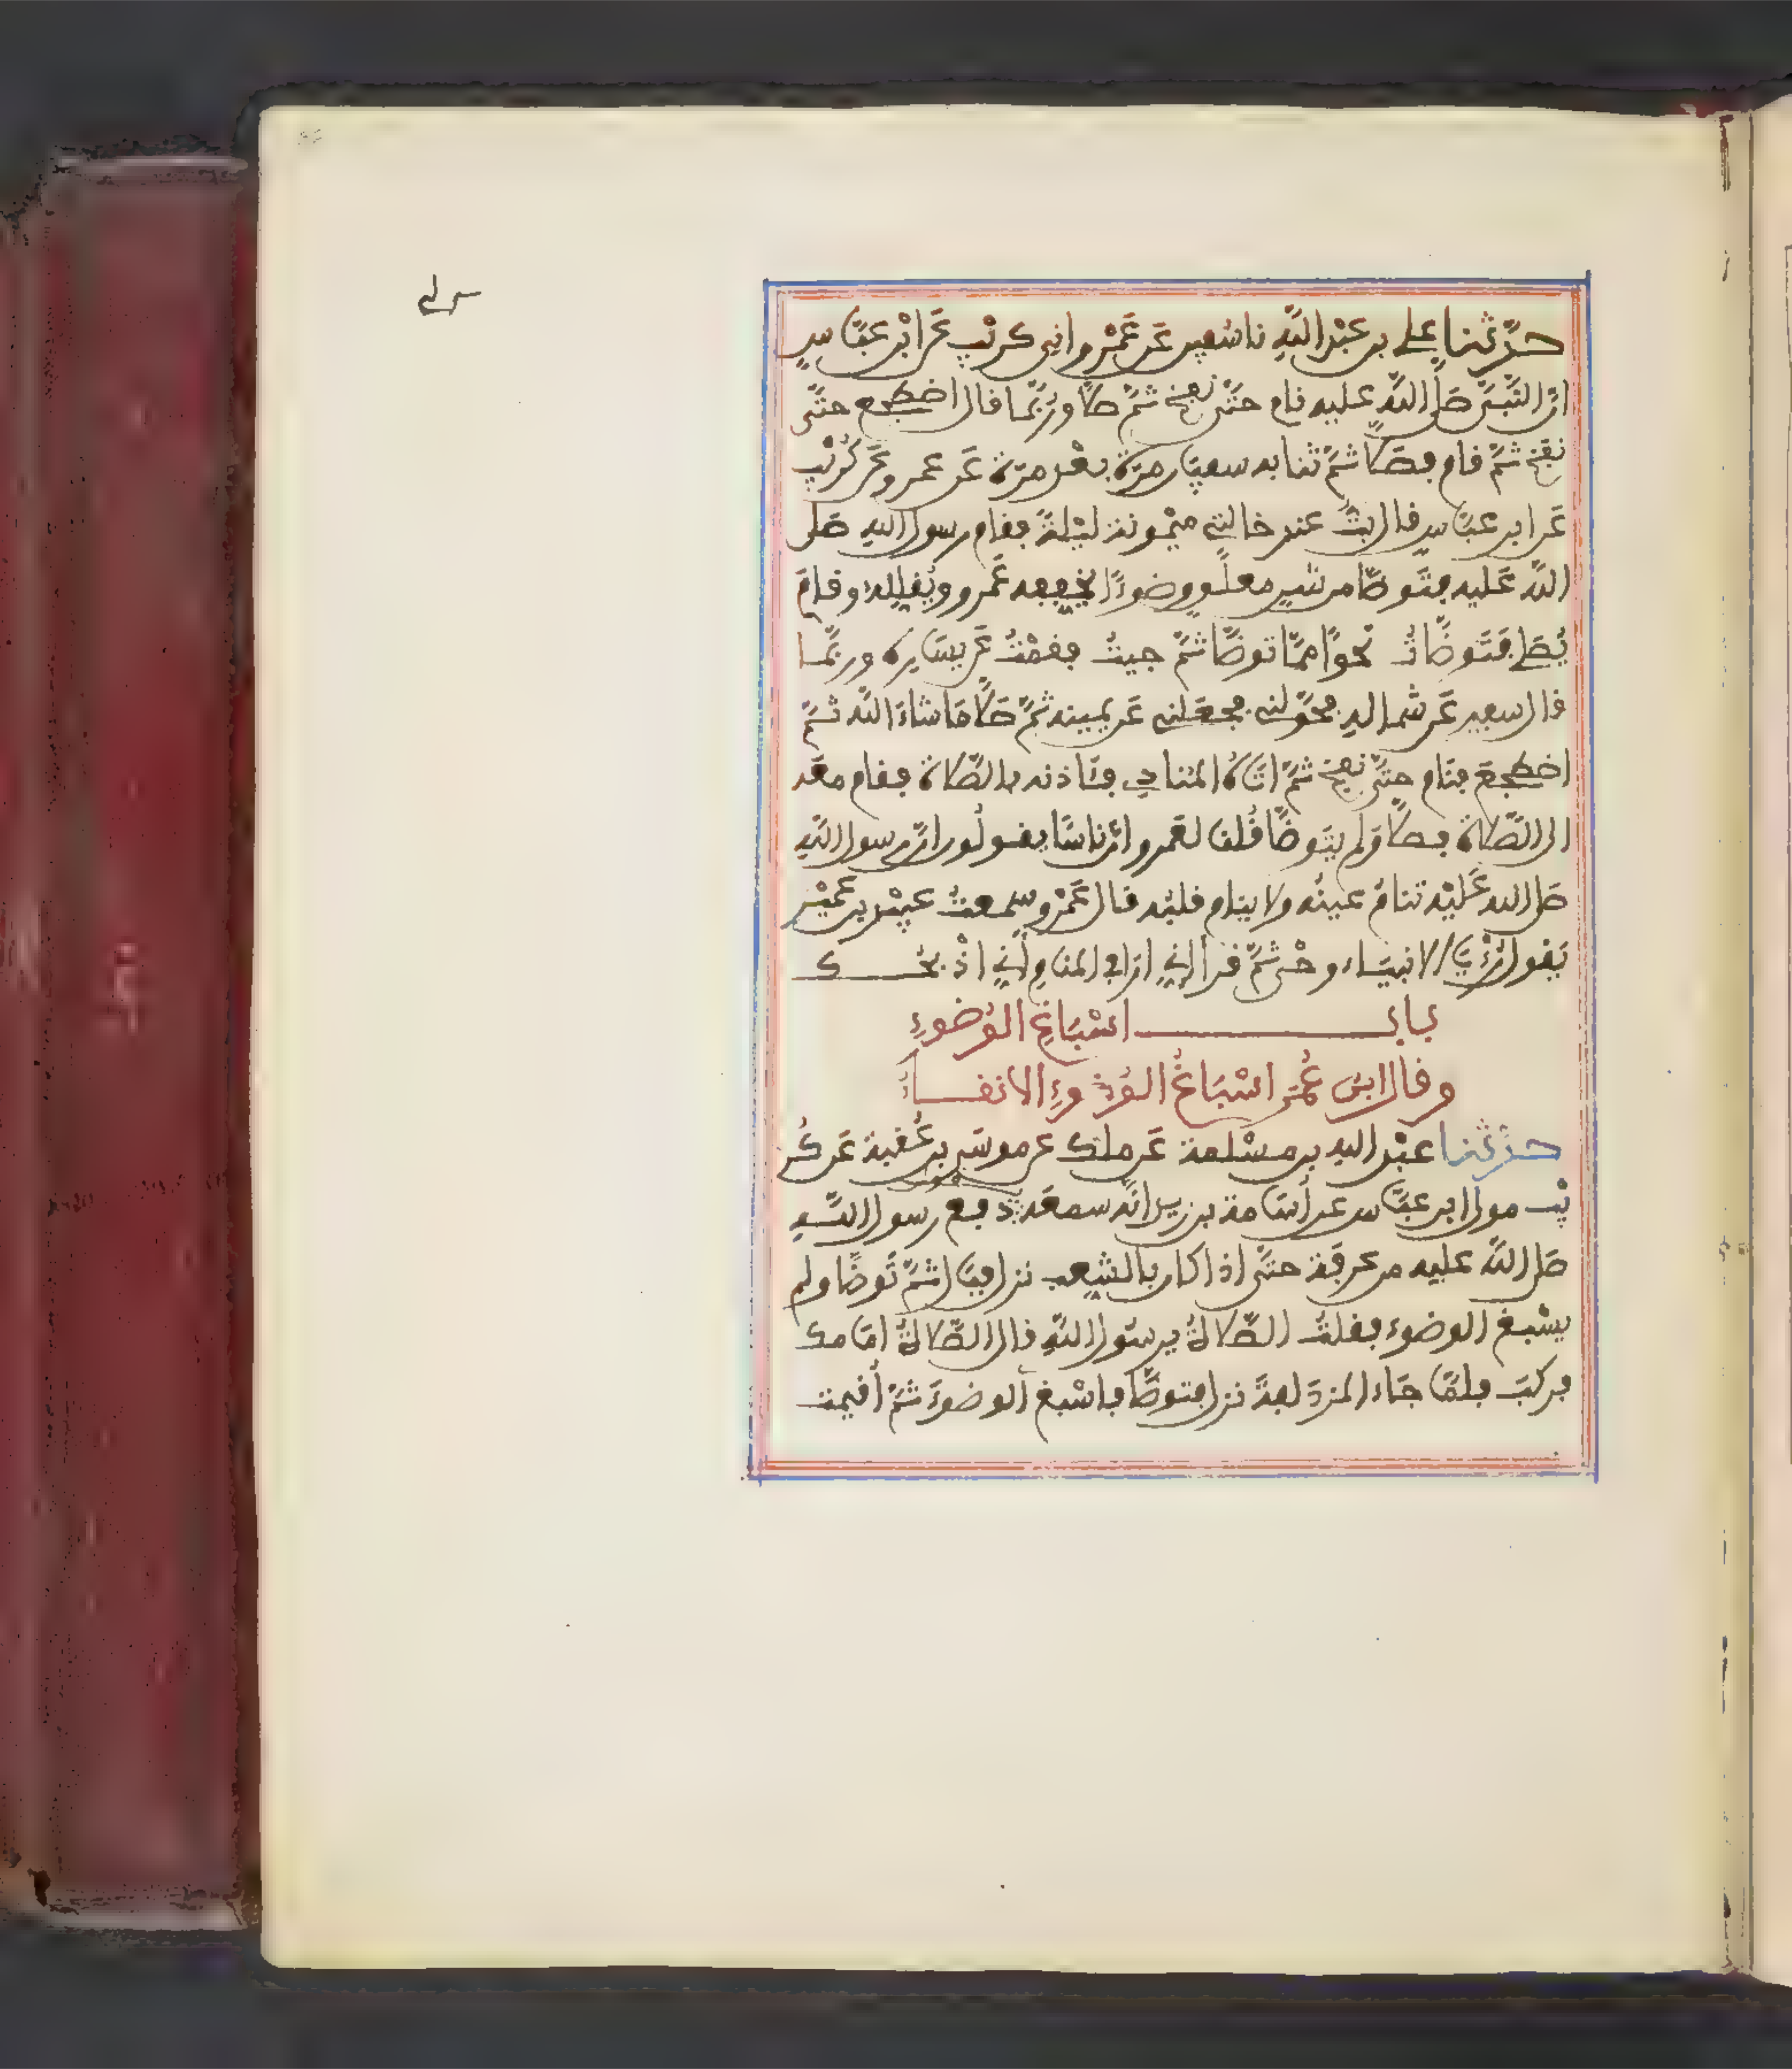 حدثنا علي بن عبد الله نا سفين عن عمرو اني كريب عن ابن عباس
ان النبي صلى الله عليه نام حتى نفخ ثم صلى وربما قال اضطجع حتى
نفخ ثم قام فصلى ثم ثنا به سفيان مرة بعد مرة عن عمرو عن كريب
عن ابن عباس قال بت عند خالتي ميمونة ليلة فقام رسول الله صلى
الله عليه فتوضأ من شن معلق وضوءا يخففه عمرو ويقلله وقام
يصلي فتوضأت نحوا مما توضأ ثم جيت فقمت عن يساره وربما
قال سفين عن شماله فحولني فجعلني عن يمينه ثم صلى ما شاء الله ثم
اضطجع فنام حتى نفخ ثم اتاه المنادي فئاذنه بالصلاة فقام معه
الى الصلاة فصلى ولم يتوضأ قلنا لعمرو ان ناسا يقولون ان رسول الله
صلى الله عليه تنام عينه ولا ينام قلبه قال عمرو سمعت عبيد بن عمير
يقول رؤيا الانبياء وحي ثم قرأ اني ارى في المنام أني اذبحك
باب اسباغ الوضوء
وقال ابن عمر اسباغ الوضوء الانقاء
حدثنا عبد الله بن مسلمة عن ملك عن موسى بن عقبة عن كر
يب مولى ابن عباس عن أسامة بن زيد انه سمعه دفع رسول الله
صلى الله عليه من عرفة حتى اذا كان بالشعب نزل فبال ثم توضأ ولم
يسبغ الوضوء فقلت الصلاة يرسول الله قال الصلاة امامك
فركب فلما جاء المزدلفة نزل فتوضأ فاسبغ الوضوء ثم أقيمت